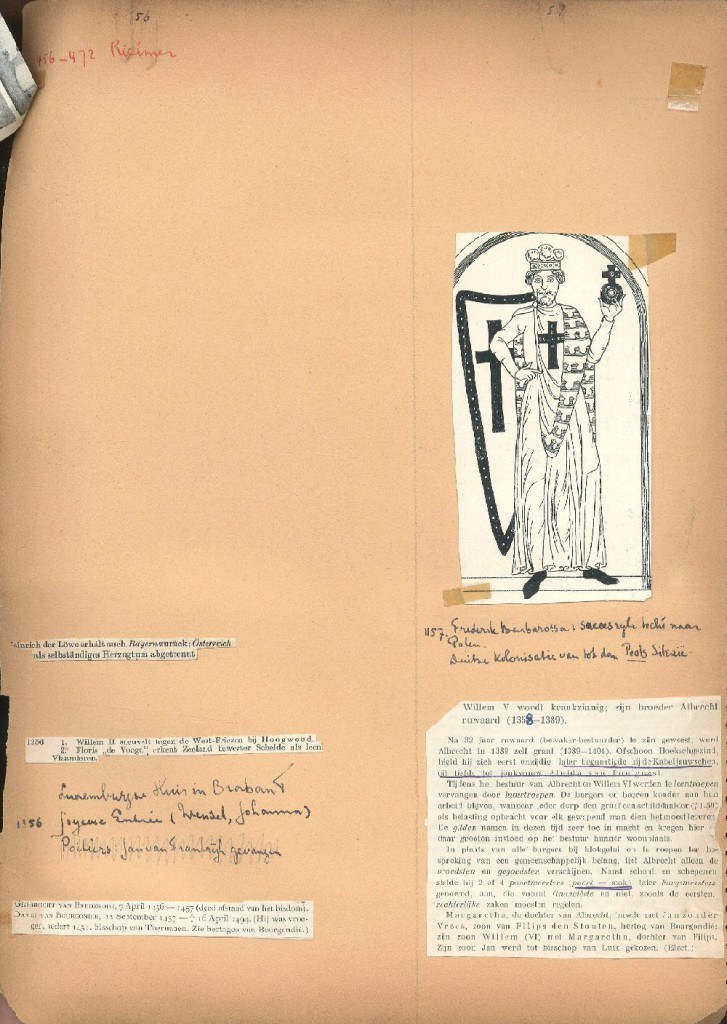 56
57
456–472 Ricimer
Heinrich der Löwe erhält auch Bayern zurück; Österreich
als selbständiges Herzogtum abgetrennt
1256 1. Willem II sneuvelt tegen de West-Friezen bij Hoogwoud.
2. Floris „de Voogd” erkent Zeeland bewester Schelde als leen
Vlaanderen.
Luxemburgse Huis in Brabant
1356 Joyeuse Entrée (Wenzel, Johanna)
Poitiers Jan van Frankrijk gevangen
Gijsbrecht van Brederode, 7 April 1456—1457 (deed afstand van het bisdom).
David van Bourgondië, 12 September 1457—† 16 April 1494. (Hij was vroe-
ger, sedert 1451, bisschop van Thérouanne. Zie hertogen van Bourgondië.)
1157. Frederik Barbarossa: succesrijke tocht naar
Polen.
Duitse Kolonisatie van tot den Silezië
Willem V wordt krankzinnig; zijn broeder Albrecht
ruwaard (1358—1389).
Na 32 jaar ruwaard (bewaker-bestuurder) te zijn geweest, werd
Albrecht in 1389 zelf graaf (1389—1404). Ofschoon Hoekschgezind,
hield hij zich eerst onzijdig later begunstigde hij de Kabeljauwschen,
uit liefde tot jonkvrouw Aleida van Poelgeest.
Tijdens het bestuur van Albrecht en Willem VI werden de leentroepen
vervangen door huurtroepen. De burgers en boeren konden aan hun
arbeid blijven, wanneer ieder dorp den graaf een schildtalken (ƒ 1.50)
als belasting opbracht voor elk gewapend man dien het moest leveren.
De gilden namen in dezen tijd zeer toe in macht en kregen hier
daar grooten invloed op het bestuur hunner woonplaats.
In plaats van alle burgers bij klokgelui op te roepen ter be-
spreking van een gemeenschappelijk belang, liet Albrecht alleen de
vroedsten en gegoedsten verschijnen. Naast schout en schepenen
stelde hij 2 of 4 poortmeesters (poort = stad) later burgemeesters
genoemd, aan, die vooral financiëele en niet, zooals de eersten,
rechterlijke zaken moesten regelen.
Margaretha, de dochter van Albrecht, huwde met Jan zonder
Vrees, zoon van Filips den Stouten, hertog van Bourgondië;
zijn zoon Willem (VI) met Margaretha, dochter van Filips.
Zijn zoon Jan werd tot bisschop van Luik gekozen. (Elect.)